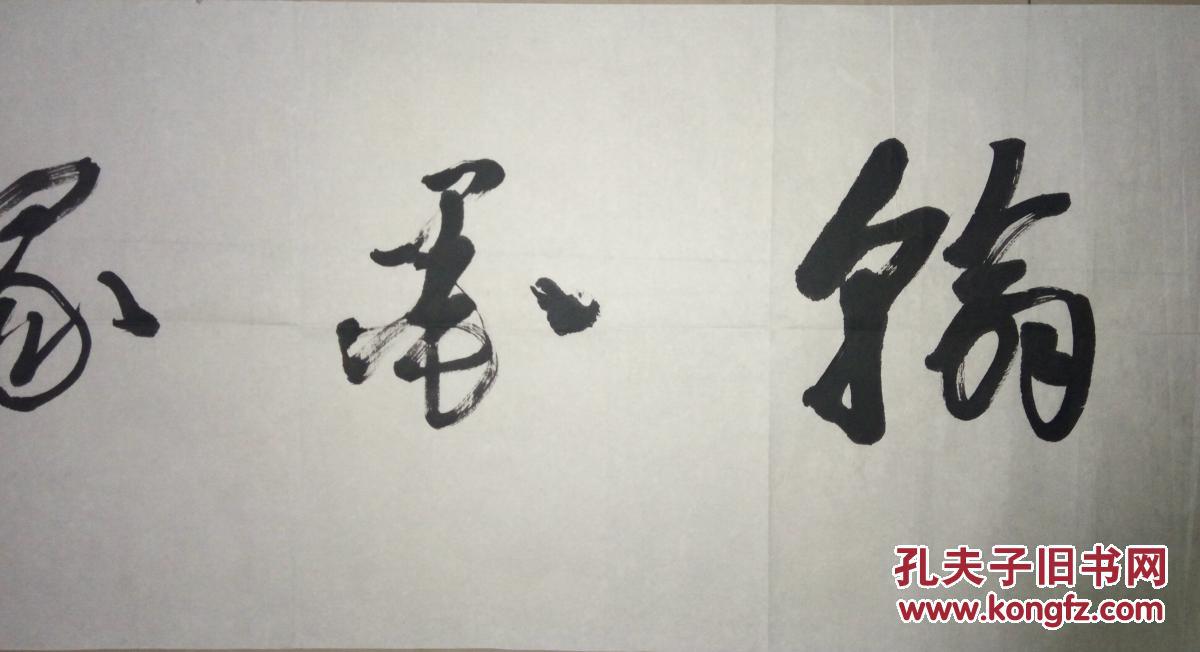 翰墨
孔夫子旧书网
www.kongfz.com